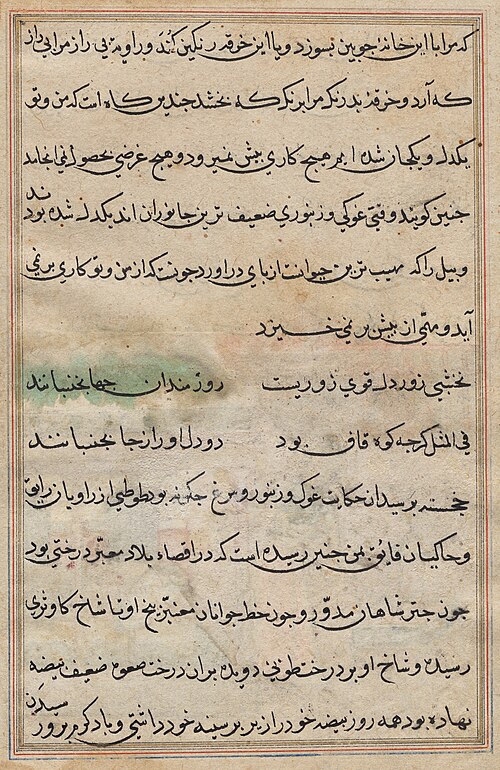 که مرا با این خانه چوبین بسوزد و یا این خرقه رنگین کند و راوی مرا
که آرد و خرقه بدرنک مرا برنک که بخشد چندین کاه است که من و تو
یکدل و یکجان شده ایم هیچ کاری بیش نمیرود و هیچ غرضی بحصول نمی انجامد
چنین کویند وقتی غوکی و زنبوری ضعیف ترین جانوران اند یکدل شده بودند
و پیل را که مهیب ترین حیوانست از پای در آورد چونست که از من و تو کاری بر نمی
آید و مهمی از پیش بر نمی خیزد
نخشبی زور دل قوی زوریست روزمندان جهان بجنبانند
فی المثل کرچه کوه قاف بود دو دل او را از جا بجنبانند
خجسته پرسید آن حکایت غوک و زنبور و مرغ چکونه بود طوطی از راویان رایق
و حاکیان فایق بمن چنین رسیده است که در اقصاء بلاد معبر درختی بود
چون چتر شاهان مدور و چون خط جوانان معنبر بیخ او تا شاخ کاو ثری
رسیده و شاخ او بر درخت طوبی دویده بران درخت صعوه ضعیف بیضه
نهاده بود همه روز بیضه خود را زیر پر سینه خود داشتی و باد کرم پرور